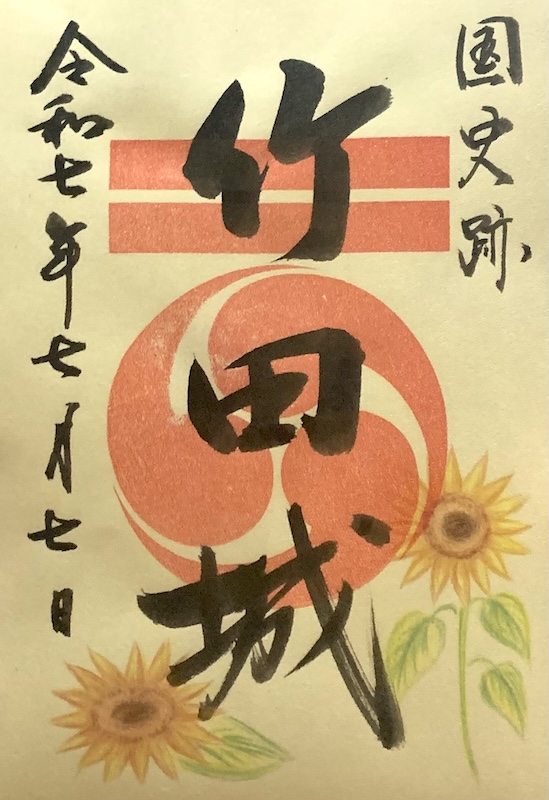 国史跡
竹田城
令和七年七月七日